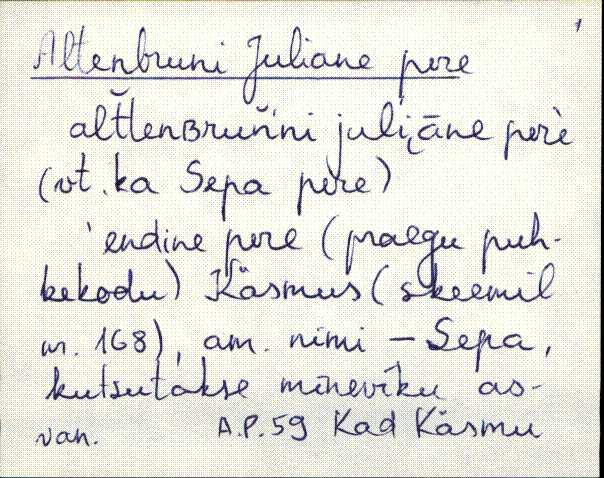 1
Altenbruni Juliane pere
alt̆tenʙruň́ni juli̯āne perè
(vt. ka Sepa pere)
'endine pere (praegu puh-
kekodu) Käsmus (skeemil
nr. 168), am. nimi – Sepa,
kutsutakse mineviku as-
van.
A.P.59 Kad Käsmu